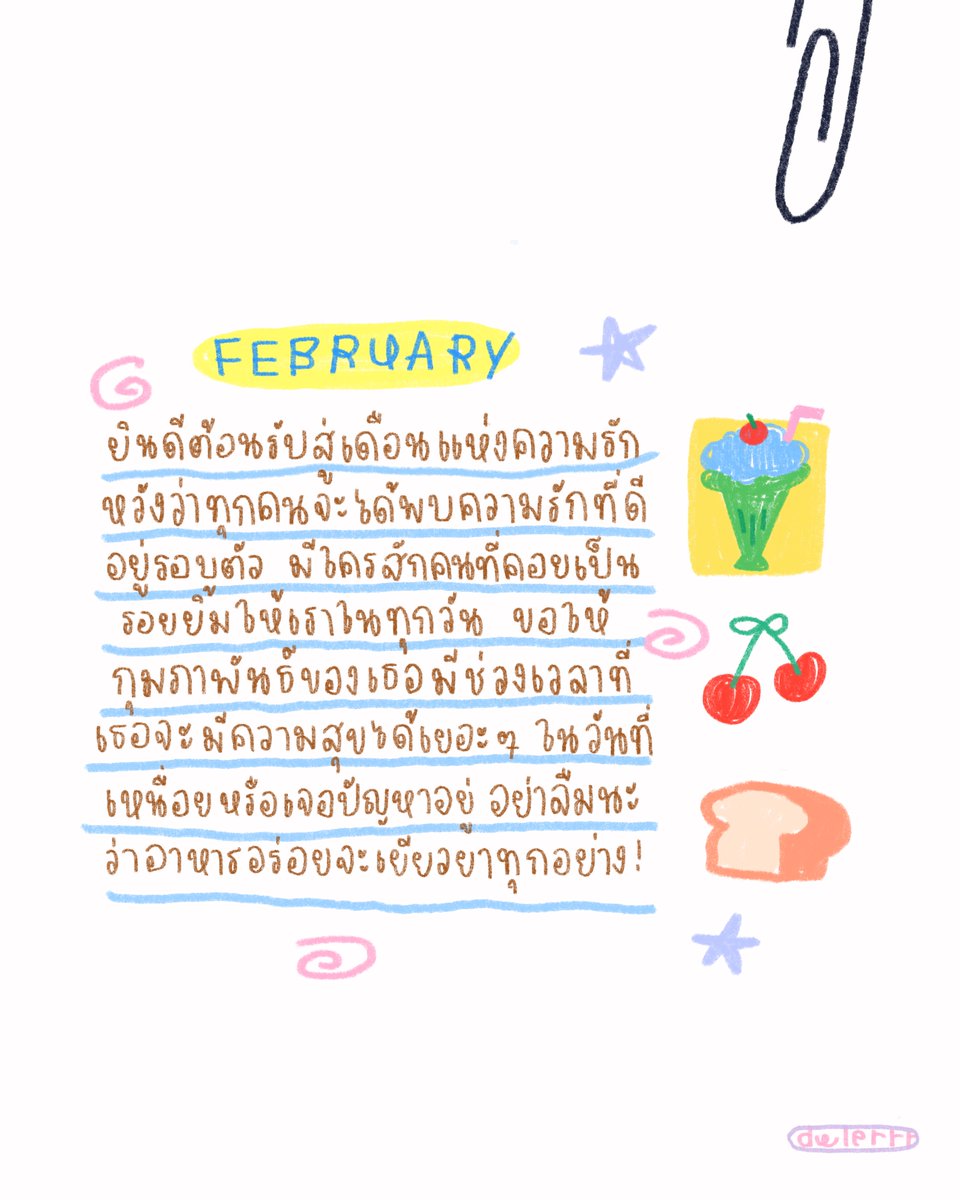 FEBRUARY
ยินดีต้อนรับสู่เดือนแห่งความรัก
หวังว่าทุกคนจะได้พบความรักที่ดี
อยู่รอบตัว มีใครสักคนที่คอยเป็น
รอยยิ้มให้เราในทุกวัน ขอให้
กุมภาพันธ์ของเธอมีช่วงเวลาที่
เธอจะมีความสุขได้เยอะๆ ในวันที่
เหนื่อยหรือเจอปัญหาอยู่ อย่าลืมนะ
ว่าอาหารอร่อยจะเยียวยาทุกอย่าง!